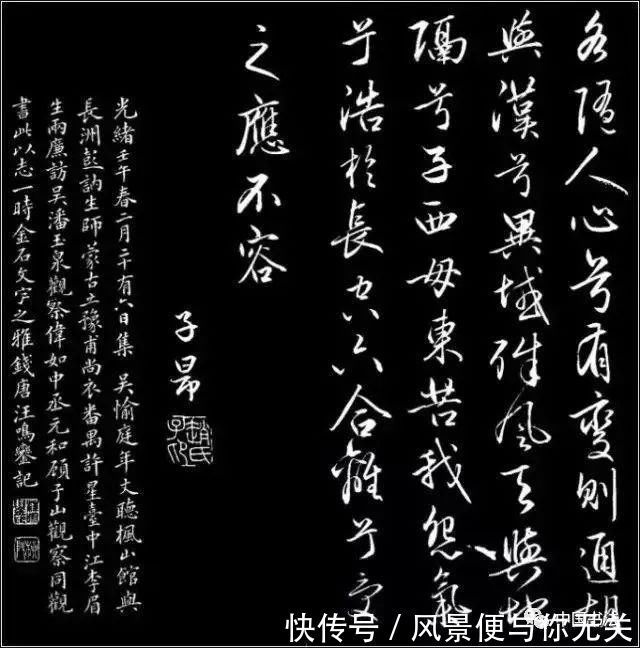 各隨人心兮有變則通胡
與漢兮異域殊風天與地
隔兮子西母東苦我怨氣
兮浩於長空六合離兮受
之應不容
子昂
趙氏子昂
光緒壬午春二月二十有六日集 吳愉庭年丈聽楓山館與
長洲彭訥生師蒙古立豫甫尚衣番禺許星臺中江李眉
生兩廉訪吳潘玉泉觀察偉如中丞元和顧子山觀察同觀
書此以志一時金石文字之雅錢唐汪鳴鑾記
中国书法
快传号 / 风景便与你无关